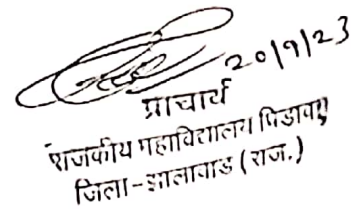 20/9/23
प्राचार्य
राजकीय महाविद्यालय पिडावा
जिला-झालावाड (राज.)